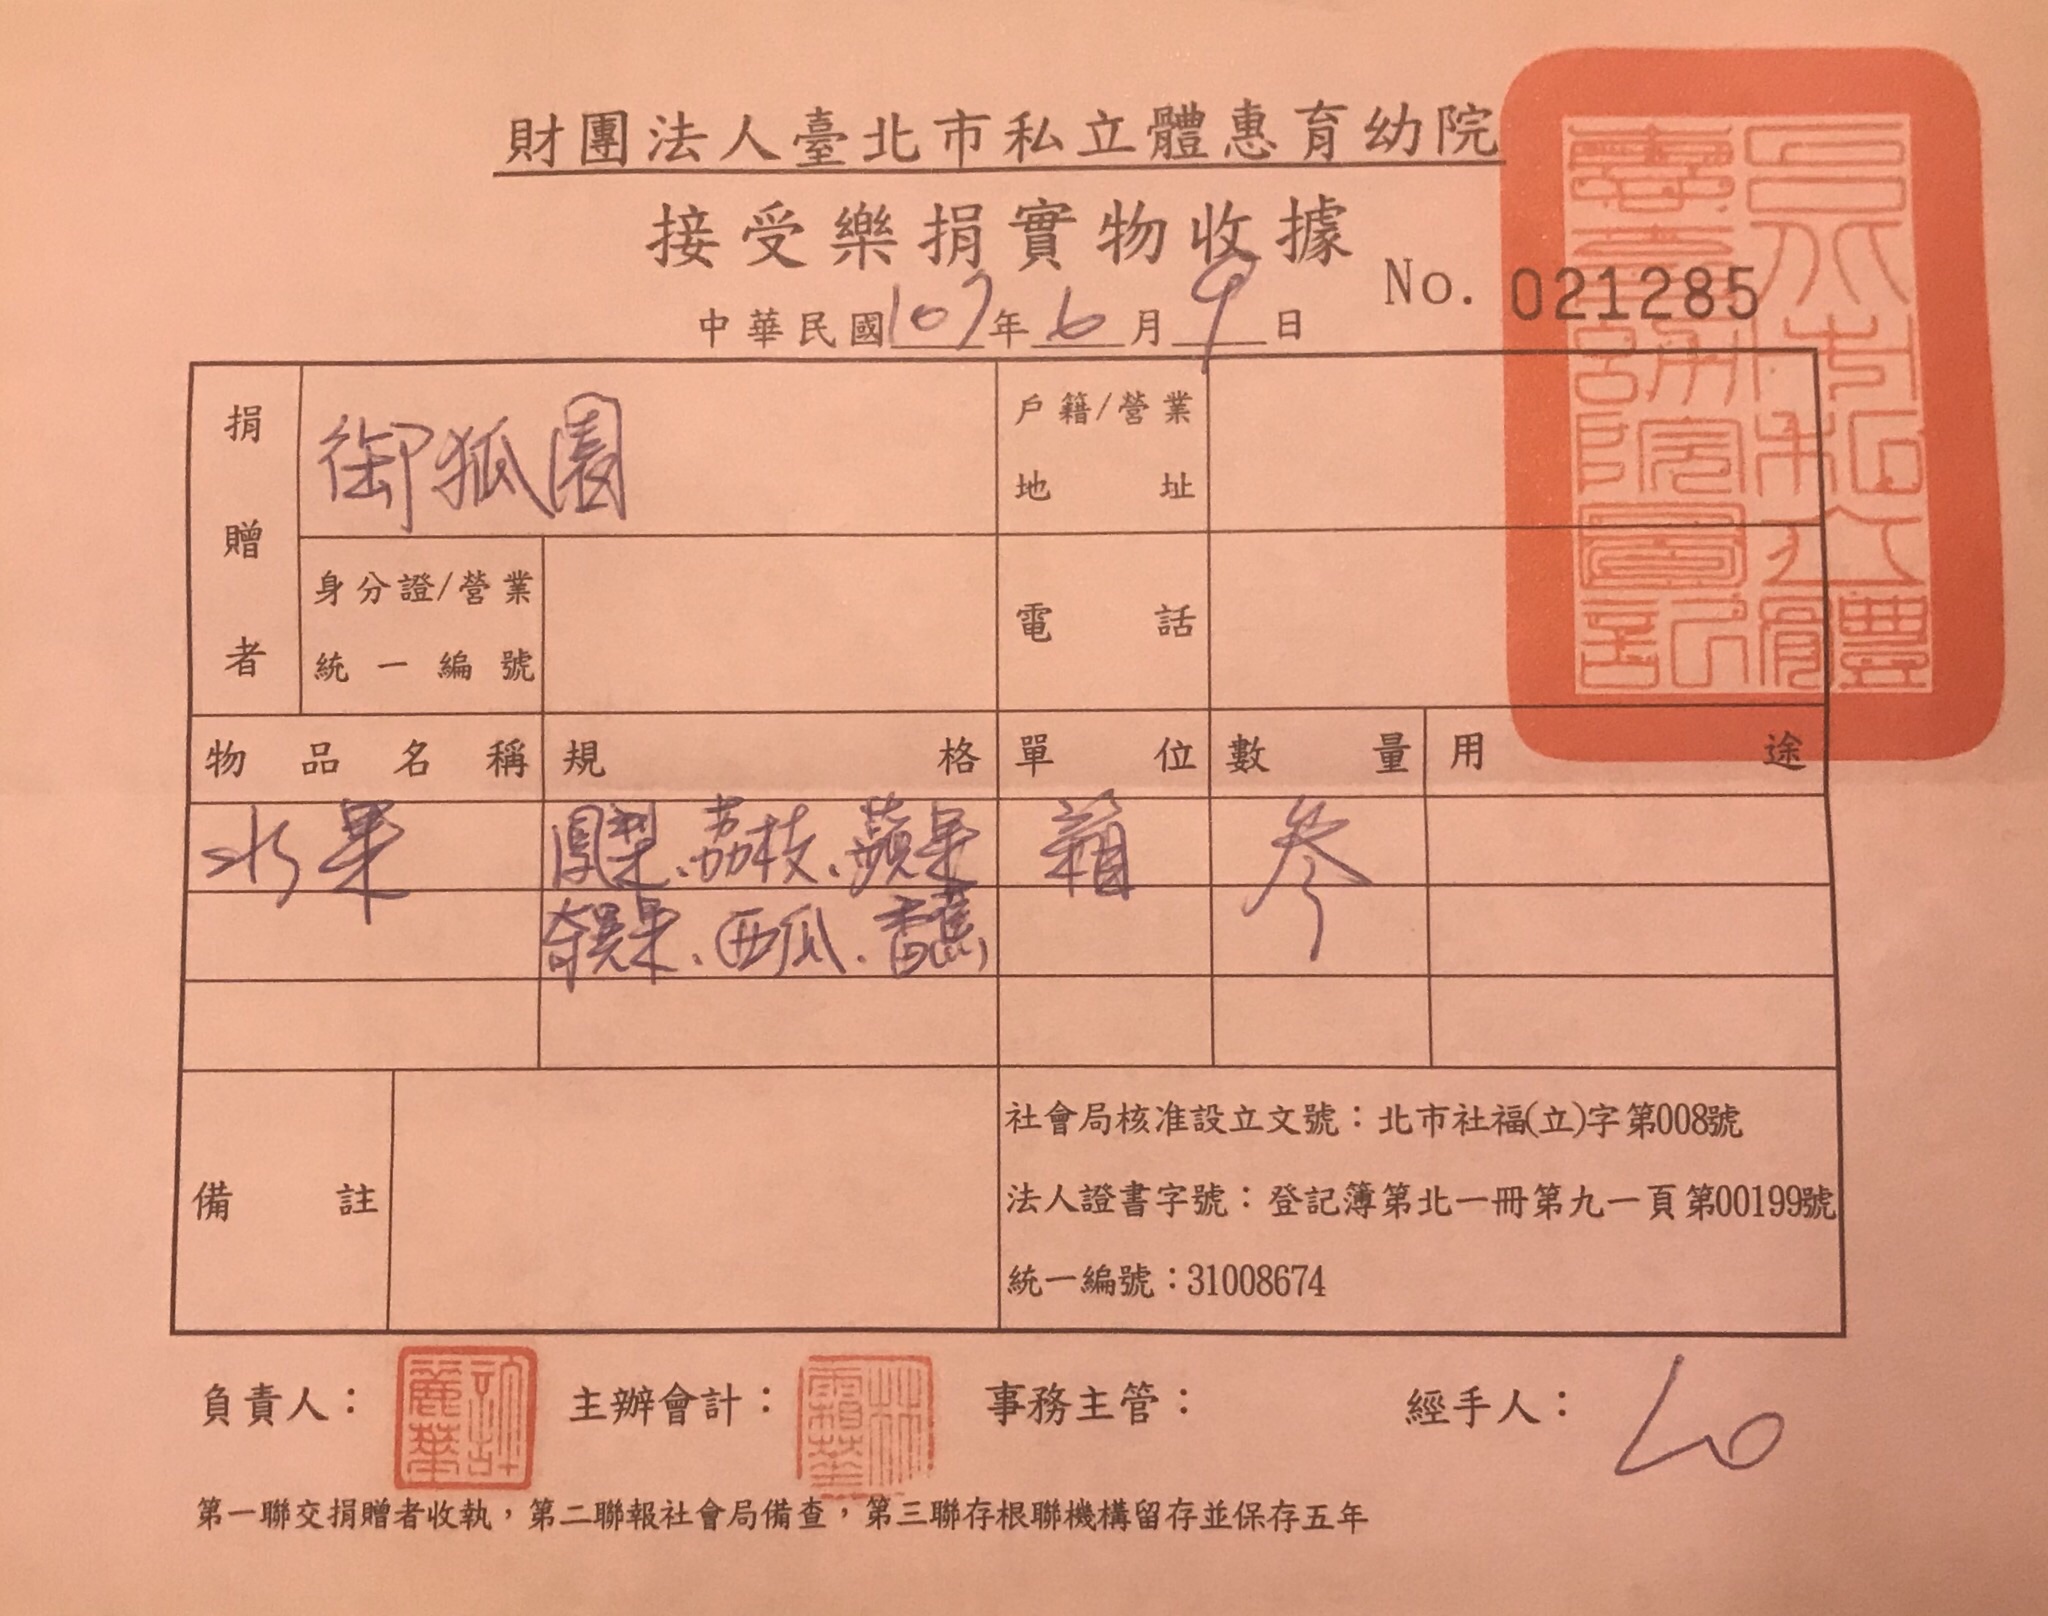 財團法人臺北市私立體惠育幼院
接受樂捐實物收據
No. 021285
中華民國107年6月9日
捐贈者
御狐園
戶籍/營業地址
身分證/營業統一編號
電話
物品名稱 規格 單位 數量 用途
水果 鳳梨、荔枝、蘋果 箱 參
奇異果、西瓜、香蕉
備註
社會局核准設立文號：北市社福(立)字第008號
法人證書字號：登記簿第北一冊第九一頁第00199號
統一編號：31008674
負責人： 主辦會計： 事務主管： 經手人：
第一聯交捐贈者收執，第二聯報社會局備查，第三聯存根聯機構留存並保存五年